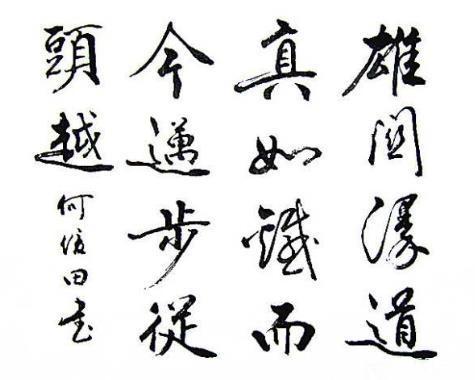 雄關漫道
真如鐵而
今邁步從
頭越
何信田書